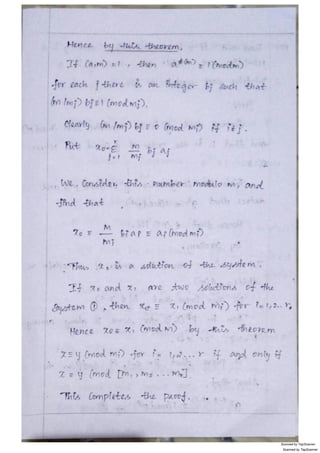 Hence by this theorem,
If (a,m)=1, then a^ϕ(m) ≡ 1 (mod m)
for each j there is an integer bj such that
(m/mj) bj ≡ 1 (mod mj).
Clearly (m/mj) bj ≡ 0 (mod mi) if i≠j.
Put x₀ = Σ_{j=1}^{r} m/mj bj aj
We Consider this number modulo mi and
find that
x₀ ≡ m/mi bi ai ≡ ai (mod mi)
Thus x₀ is a solution of the system.
If x₀ and x₁ are two solutions of the
system ①, then x₀ ≡ x₁ (mod mi) for i=1,2...r,
Hence x₀ ≡ x₁ (mod m) by this theorem
x ≡ y (mod mi) for i = 1,2,...r if and only if
x ≡ y (mod [m₁, m₂ ... mr].
This Completes the proof.
Scanned by TapScanner
Scanned by TapScanner